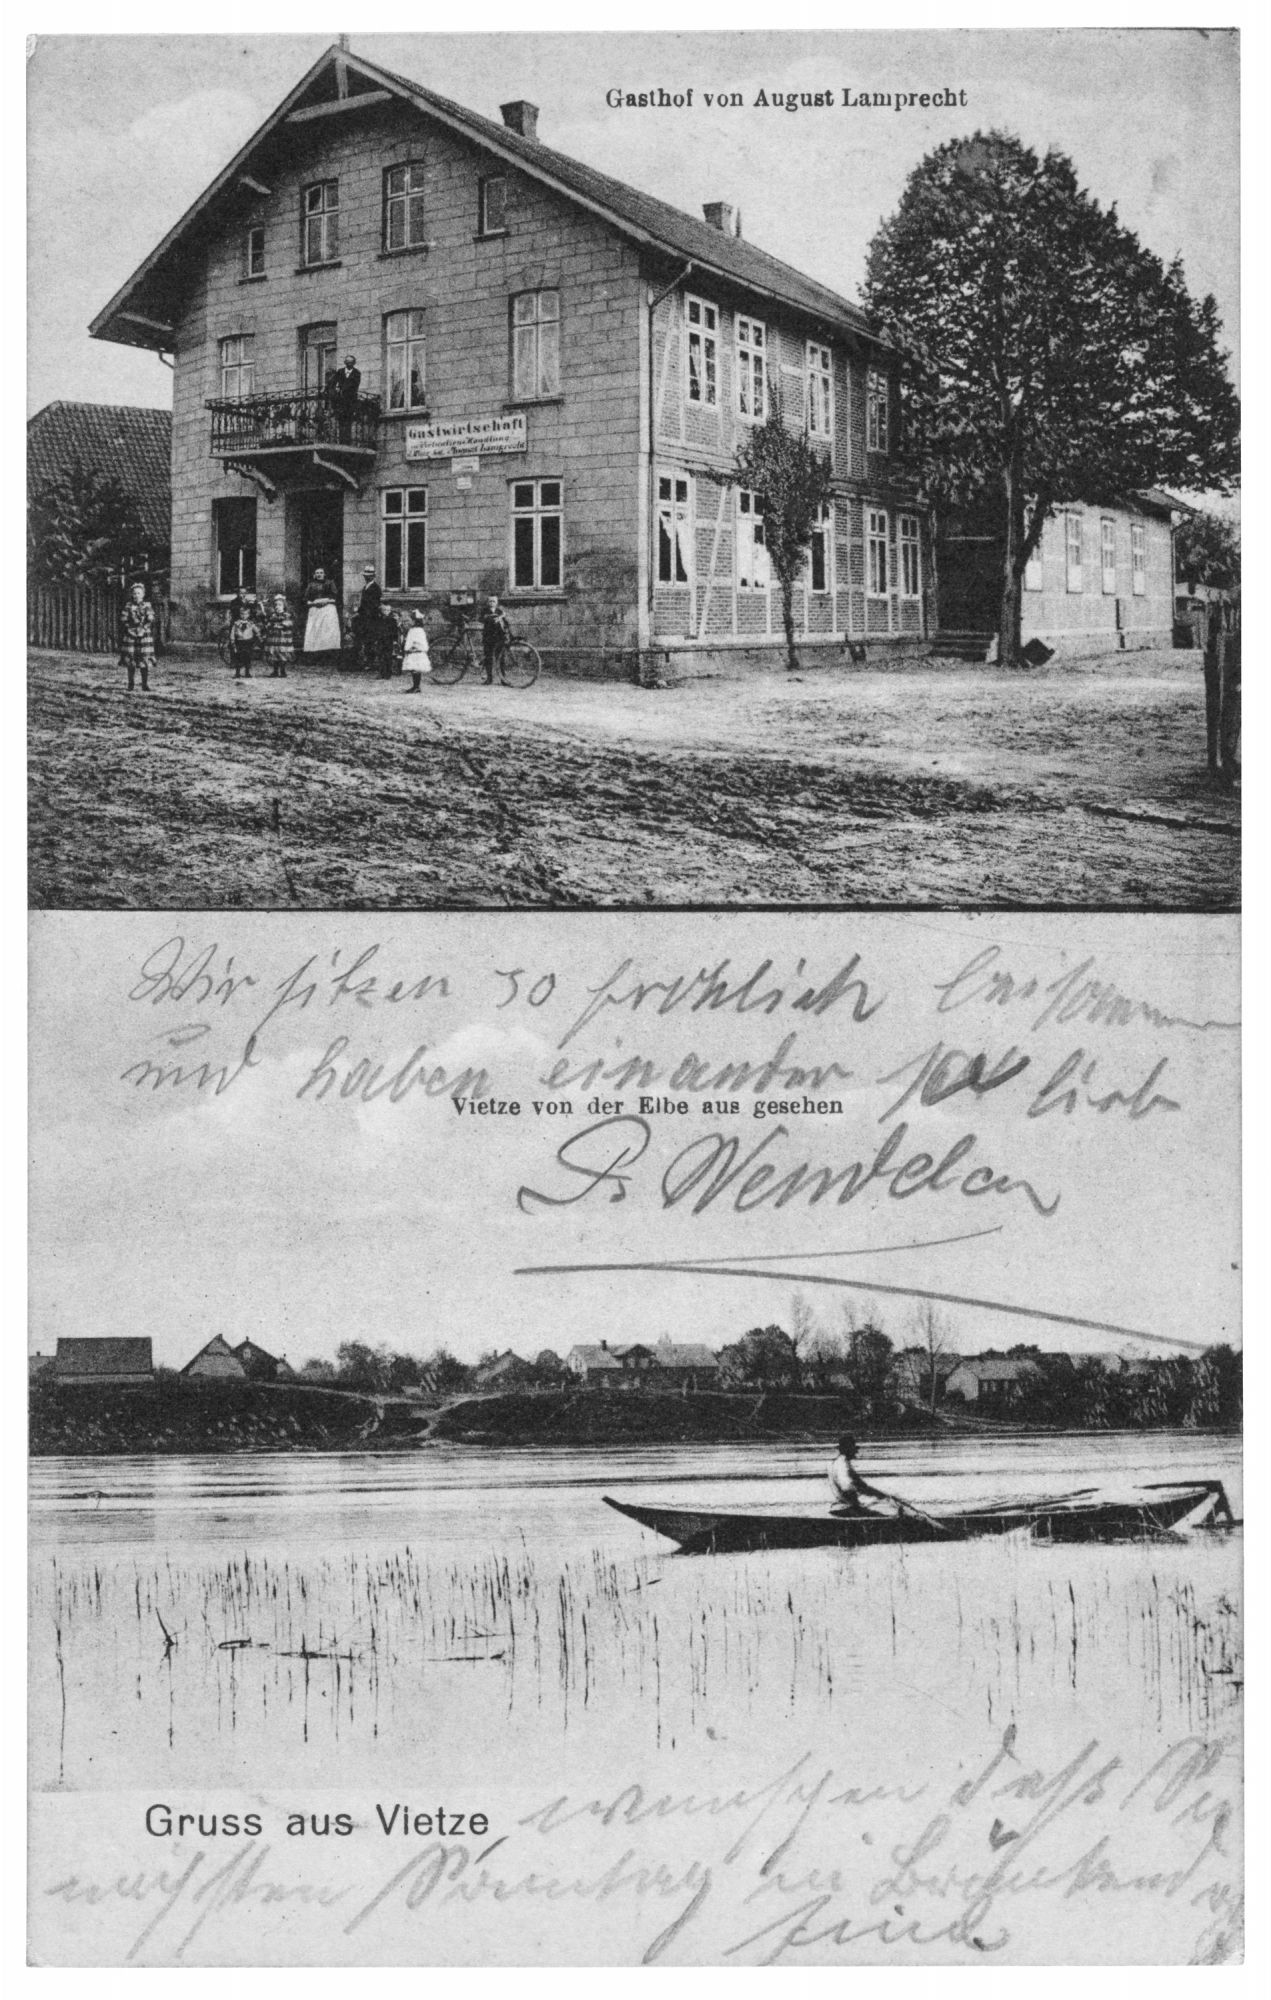 Gasthof von August Lamprecht
Gastwirtschaft
Handlung
von August Lamprecht
Wir sitzen so fröhlich beisammen
und haben einander so lieb
Vietze von der Elbe aus gesehen
Gruss aus Vietze
wünschen dass Sie
nächsten Sonntag in
sind